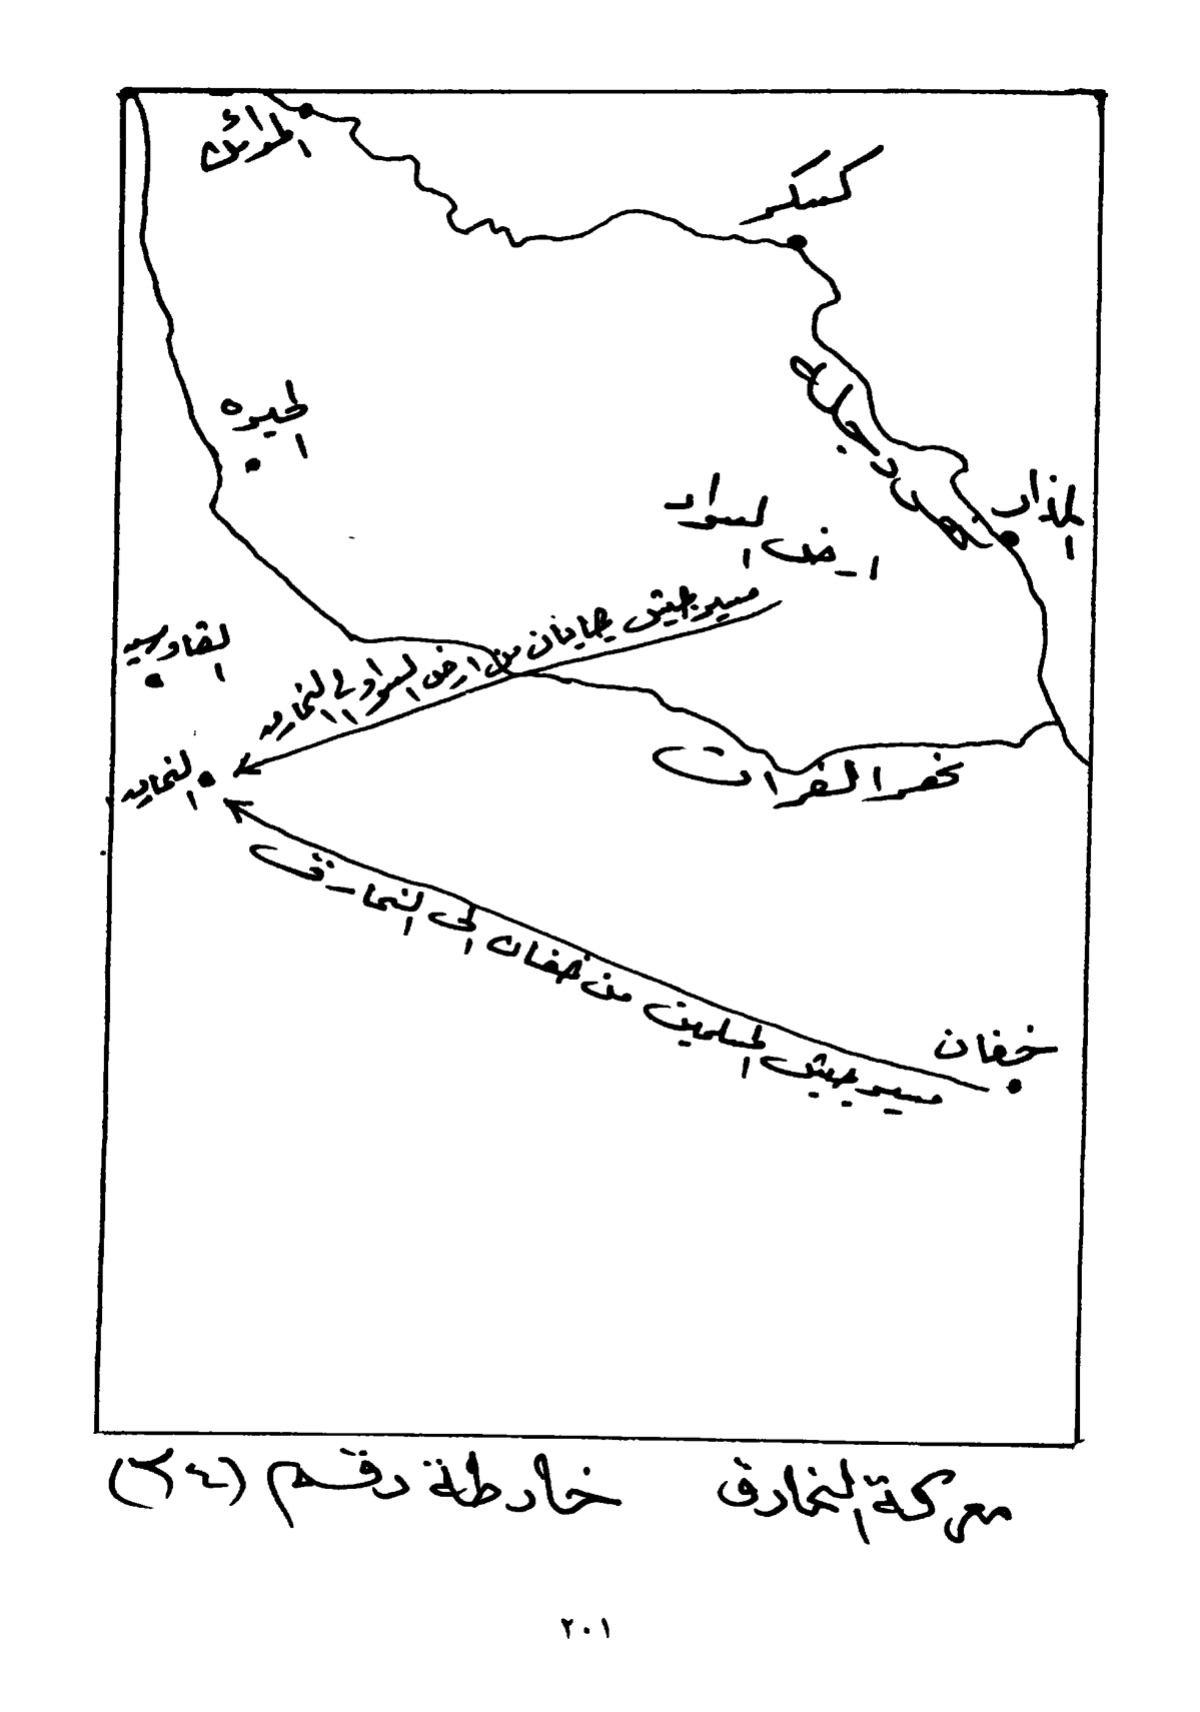 المدائن
كسكر
الحيره
نهر دجله
المذار
ارض السواد
مسير جيش جابان من ارض السواد الى النمارق
القادسيه
النمارق
نهر الفرات
مسير جيش المسلمين من خفان الى النمارق
خفان
معركة النمارق خارطة رقم (٢٤)
٢٠١